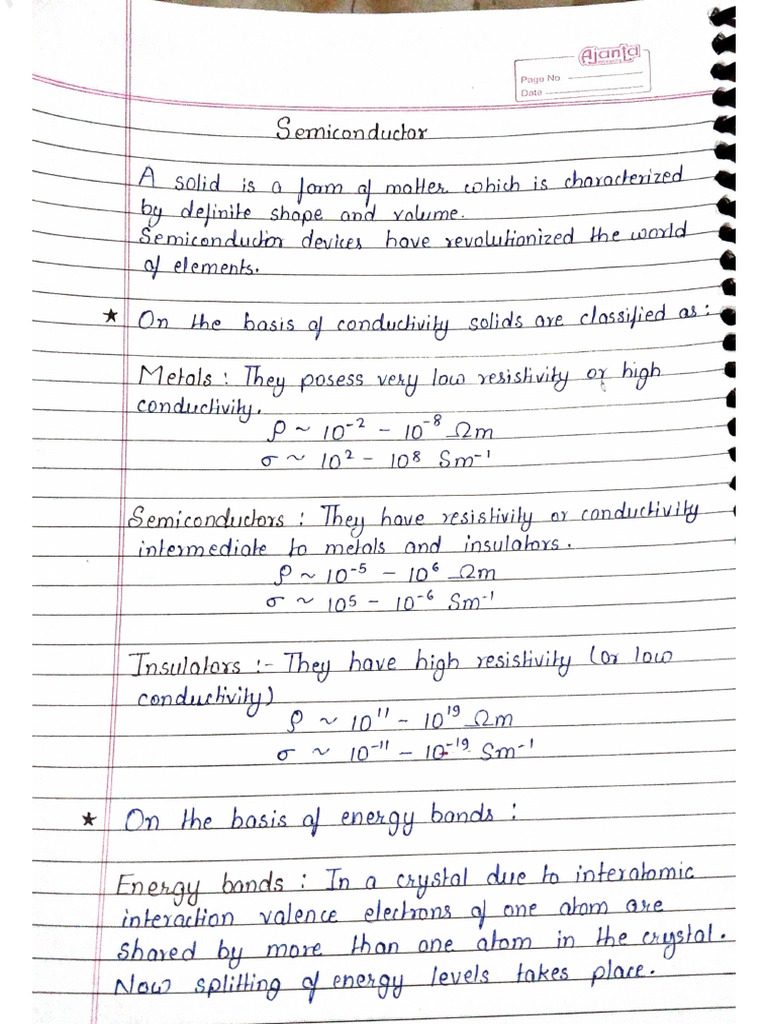 Ajanta
Page No
Date
Semiconductor
A solid is a form of matter which is characterized
by definite shape and volume.
Semiconductor devices have revolutionized the world
of elements.
★ On the basis of conductivity solids are classified as:
Metals : They posess very low resistivity or high
conductivity.
ρ ~ 10⁻² – 10⁻⁸ Ωm
σ ~ 10² – 10⁸ Sm⁻¹
Semiconductors : They have resistivity or conductivity
intermediate to metals and insulators.
ρ ~ 10⁻⁵ – 10⁶ Ωm
σ ~ 10⁵ – 10⁻⁶ Sm⁻¹
Insulators :- They have high resistivity (or low
conductivity)
ρ ~ 10¹¹ – 10¹⁹ Ωm
σ ~ 10⁻¹¹ – 10⁻¹⁹ Sm⁻¹
★ On the basis of energy bands :
Energy bands : In a crystal due to interatomic
interaction valence electrons of one atom are
shared by more than one atom in the crystal.
Now splitting of energy levels takes place.